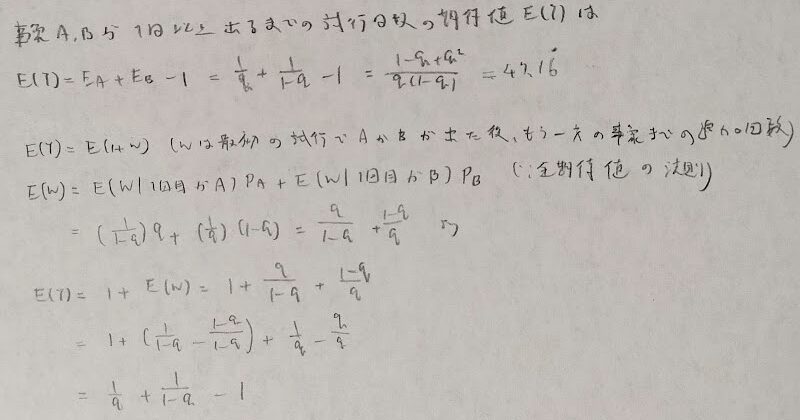 事象A,Bが1回以上出るまでの試行回数の期待値E(T)は
E(T) = E_A + E_B - 1 = 1/q + 1/(1-q) - 1 = (1-q+q²)/(q(1-q)) = 47.16̇
E(T) = E(1+W) (Wは最初の試行でAかBが出た後、もう一方の事象までの追加回数)
E(W) = E(W|1回目がA)P_A + E(W|1回目がB)P_B (∵全期待値の法則)
= (1/(1-q))q + (1/q)(1-q) = q/(1-q) + (1-q)/q より
E(T) = 1 + E(W) = 1 + q/(1-q) + (1-q)/q
= 1 + (1/(1-q) - (1-q)/(1-q)) + 1/q - q/q
= 1/q + 1/(1-q) - 1